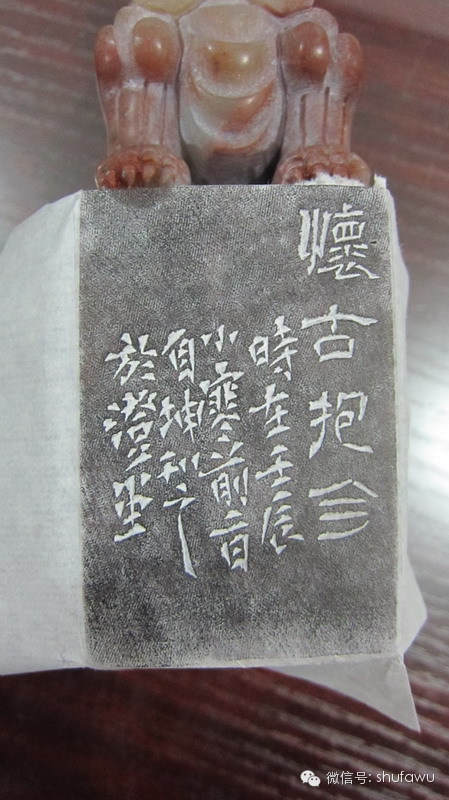 懷古抱今
時在壬辰
小寒前一日
自坤之
於澄
微信号: shufawu